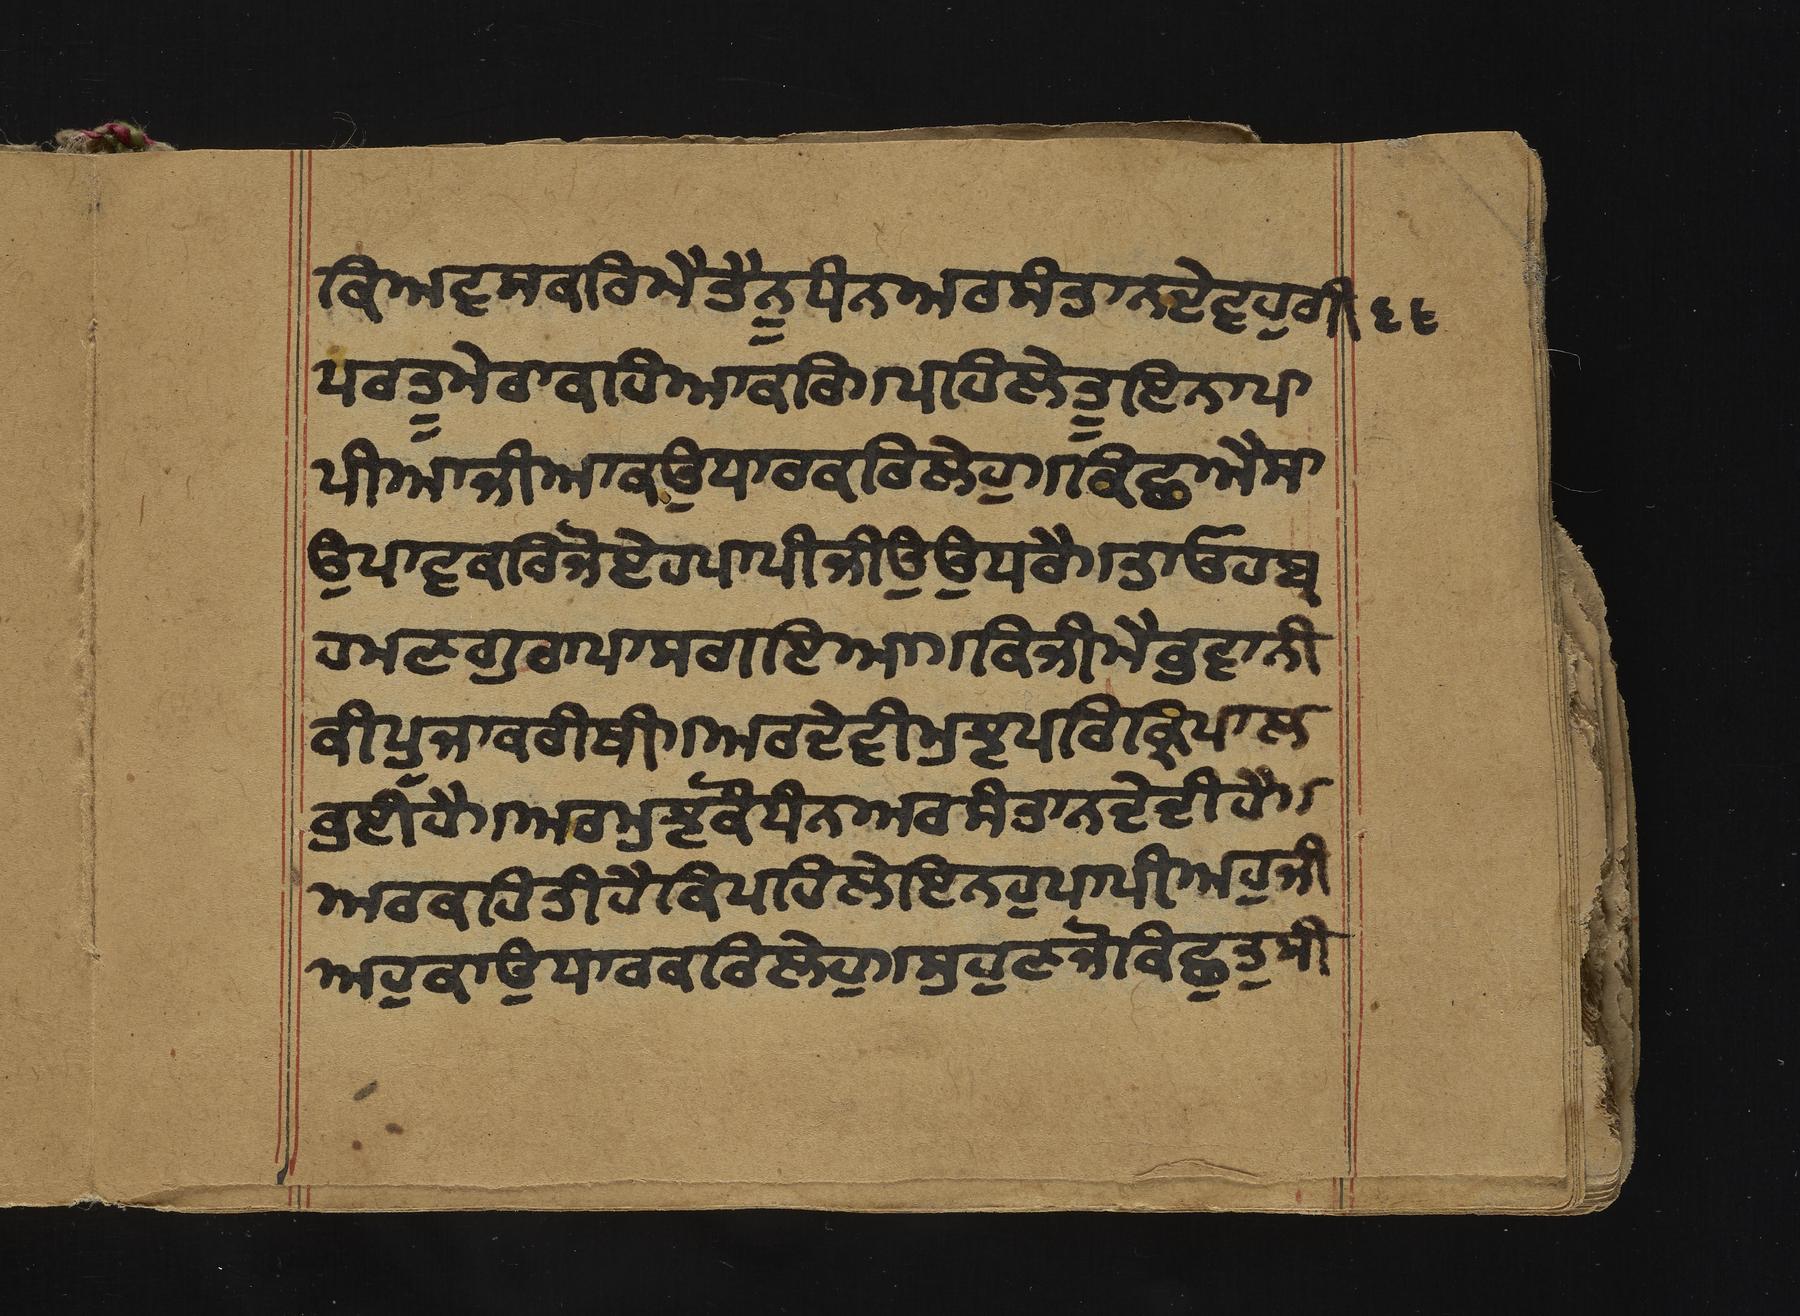 ਕਿਅਵਸਕਰਿਮੈਤੈਨੂਧੰਨਅਰਸੰਤਾਨਦੇਵਹੁਗੀ। ੬੬
ਪਰਤੂਮੇਰਾਕਹਿਆਕਰਿ।ਪਹਿਲੇਤੂਇਨਾਪਾ
ਪੀਆਜੀਆਕਉਧਾਰਕਰਿਲੇਹੁ।ਕਿਛੁਐਸਾ
ਉਪਾਵਕਰਿਜੋਏਹਪਾਪੀਜੀਉਉਧਰੈ।ਤਾਓਹਬ੍
ਹਮਣਗੁਰਾਪਾਸਗਇਆ।ਕਿਜੀਮੈਭਵਾਨੀ
ਕੀਪੂਜਾਕਰੀਥੀ।ਅਰਦੇਵੀਮੁਝਪਰਿਕ੍ਰਿਪਾਲ
ਭਈਹੈ।ਅਰਮੁਝਕੋਧੰਨਅਰਸੰਤਾਨਦੇਦੀਹੈ।
ਅਰਕਹਿਤੀਹੈਕਿਪਹਿਲੇਇਨਹੁਪਾਪੀਅਹੁਜੀ
ਅਹੁਕਾਉਧਾਰਕਰਿਲੇਹੁ।ਸੁਹੁਣਜੋਕਿਛੁਤੁਸੀ